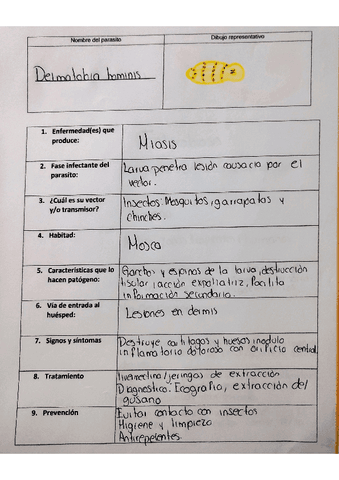 Nombre del parasito
Dibujo representativo
Dermatobia hominis
1. Enfermedad(es) que
produce:
Miasis
2. Fase infectante del
parasito:
Larva penetra lesión causacia por el
vector.
3. ¿Cuál es su vector
y/o transmisor?
Insectos: Mosquitos, garrapatas y
chinches.
4. Habitad:
Mosca
5. Características que lo
hacen patógeno:
Ganchos y espinas de la larva, destrucción
tisular (acción expoliatriz, Facilita
información secundaria.
6. Vía de entrada al
huésped:
Lesiones en dermis
7. Signos y síntomas
Destruye cartilagos y huesos, nodulo
inflamatorio doloroso con orificio central.
8. Tratamiento
Ivermectina/jeringas de extracción
Diagnostico: Ecografia, extracción del
gusano
9. Prevención
Evitar contacto con insectos
Higiene y limpieza
Antirepelentes.